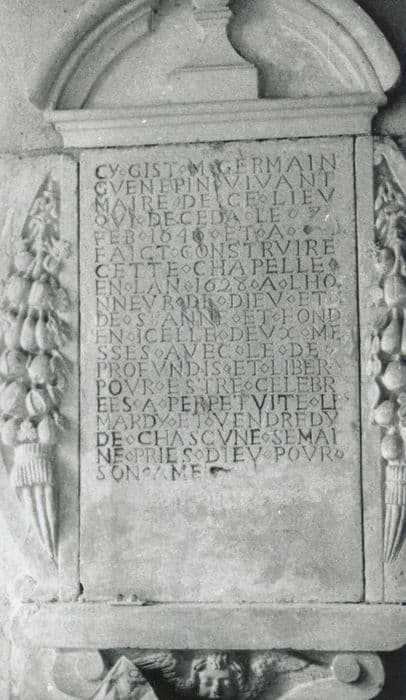 CY◇GIST◇M◇GERMAIN
GVENEPIN◇VIVANT
MAIRE◇DE◇CE◇LIEV
QVI◇DECEDA◇LE◇7
FEB◇164 ◇ET◇A◇
FAICT◇CONSTRVIRE
CETTE◇CHAPELLE◇
EN◇LAN◇1628◇A◇LHO
NNEVR◇DE◇DIEV◇ET◇
DE◇STE◇ANNE◇ET◇FOND
EN◇ICELLE◇DEVX◇ME
SSES◇AVEC◇LE◇DE◇
PROFVNDIS◇ET◇LIBER◇
POVR◇ESTRE◇CELEBR
EES◇A◇PERPETVITE◇LE
MARDY◇ET◇VENDREDY
DE◇CHASCVNE◇SEMAI
NE◇PRIES◇DIEV◇POVR◇
SON◇AME